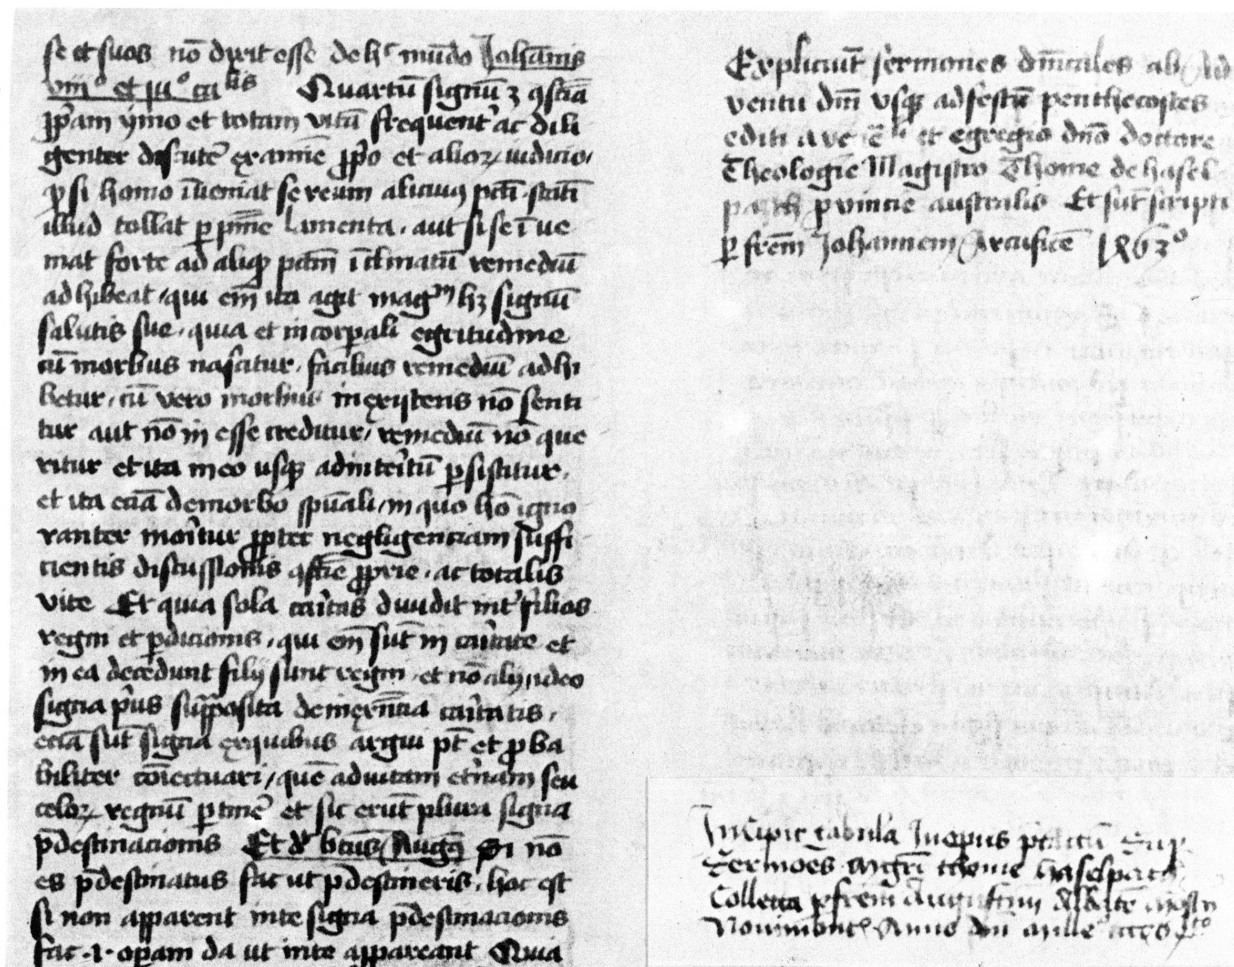 se et suos nō dixit esse de h̄ mūdo Johānis
viiiº et xvº caˡⁱˢ Quartū signū ꝫ ꝯsciā
ꝓpam ymo et totam vitā frequent̾ ac dili
genter discute᷑ exanīe ꝓpo et alioꝝ iudicio
ꝙ si homo īueniat se reum alicuiꝯ pctī statī
illud tollat ꝑ pnīe lamenta, aut si se īue
niat forte ad aliqđ pctm̄ īclinatū remediū
adhibeat, qui em̄ ita agit magᵐ hꝫ signū
salutis sue, quia et in corꝑali egritudine
cū morbus nascitur, facilius remediū adhi
betur, cū vero morbus inexistens nō senti
tur aut nō inesse creditur, remediū nō que
ritur et ita in eo usqꝫ ad int̾itū ꝑsistitur,
et ita eciā de morbo spūali, in quo hō igno
ranter mor̄itur ꝓpter negligenciam suffi
cientis discussionis ꝯscīe ꝓprie, ac totalis
vite Et quia sola caritas diuidit int̾ filios
regni et ꝑdicionis, qui em̄ sūt in caritate et
in ea decedunt filij sunt regni, et nō alij, ideo
signa pͥus supposita de caritatis,
eciā sūt signa ex quibus argui pt̄ et ꝓba
biliter cōiectuari, quē ad vitam et̾nam seu
celoꝝ regnū ꝑtinē et sic erūt plura signa
p̄destinacionis Et đ btūs Augꝯ Si nō
es p̄destinatus fac ut p̄destineris, hoc est
si non apparent in te signa p̄destinacionis
fac .i. oꝑam da ut in te appareant Quia
Expliciūt sermones dn̄icales ab Ad
ventu dn̄i vsqꝫ ad festū penthecostes
editi a ve et egregio dn̄o doctore
Theologie Magistro Thome de hasel
pach ꝓvincie australis Et sūt scripti
ꝑ frēm Johannem Arcificē 1463º
Incipit tabula in opus sup
Sermoēs mgr̄i thome haselpach
Collecta ꝑ frēm Augustinū
Anno dn̄i mille